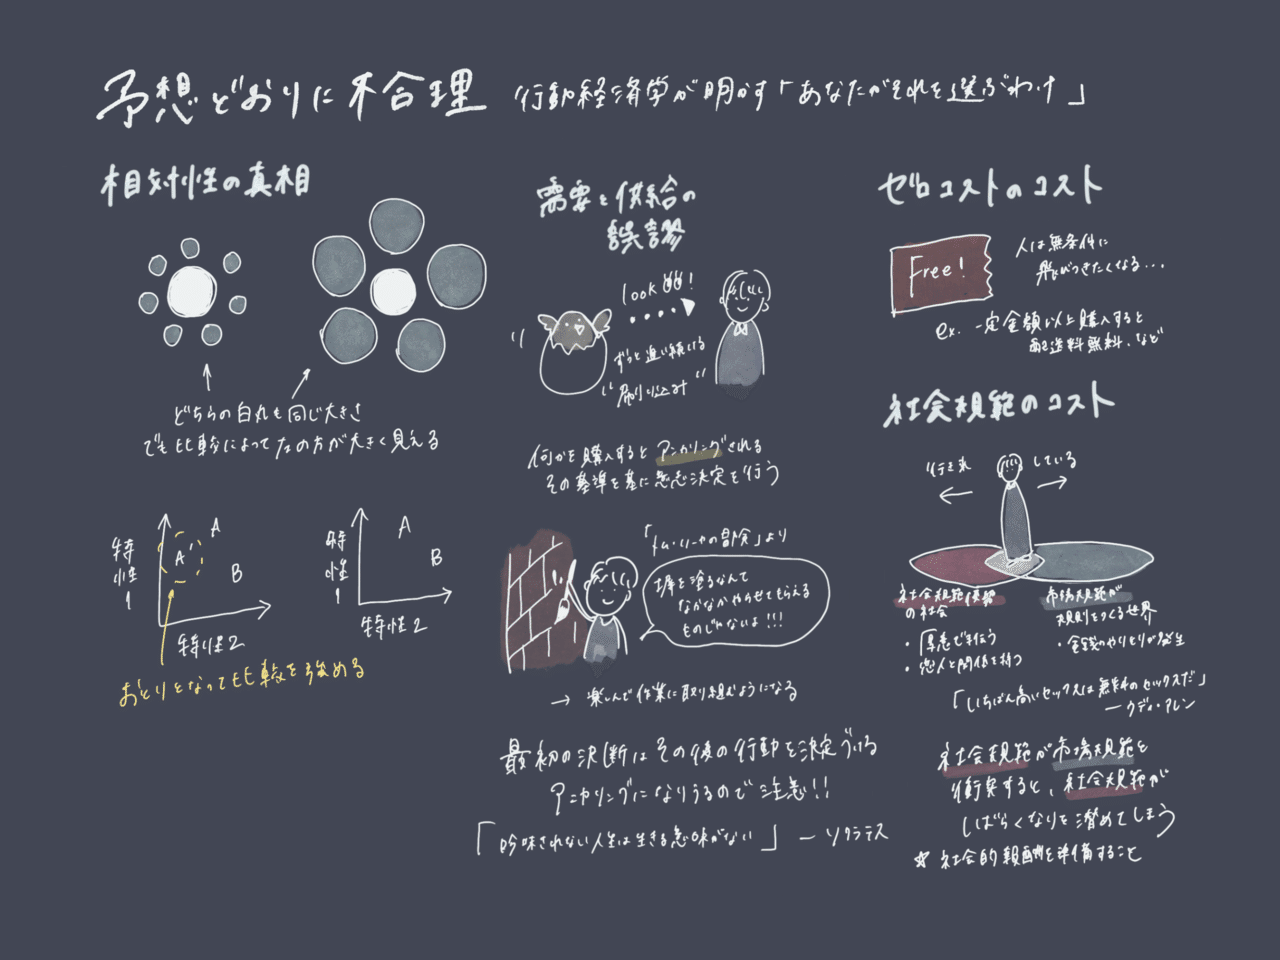 予想どおりに不合理 行動経済学が明かす「あなたがそれを選ぶわけ」
相対性の真相
どちらの白丸も同じ大きさ
でも比較によって左の方が大きく見える
特性1
A
A'
B
特性2
おとりとなって比較を強める
特性1
A
B
特性2
需要と供給の
誤謬
look
ずっと追い続ける
"刷り込み"
何かを購入すると アンカリングされる
その基準を基に意志決定を行う
「トム・ソーヤの冒険」より
塀を塗るなんて
なかなかやらせてもらえる
ものじゃないよ!!!
→ 楽しんで作業に取り組むようになる
最初の決断はその後の行動を決定づける
アンカリングになりうるので注意!!
「吟味されない人生は生きる意味がない」 ー ソクラテス
ゼロコストのコスト
Free!
人は無条件に
飛びつきたくなる...
ex. 一定金額以上購入すると
配送料無料、など
社会規範のコスト
している
社会規範優勢
の社会
・厚意で手伝う
・恋人と関係を持つ
市場規範が
規則をつくる世界
・金銭のやりとりが発生
「いちばん高いセックスは無料のセックスだ」
ー ウディ・アレン
社会規範が市場規範と
衝突すると、社会規範が
しばらくなりを潜めてしまう
☆ 社会的報酬を準備すること